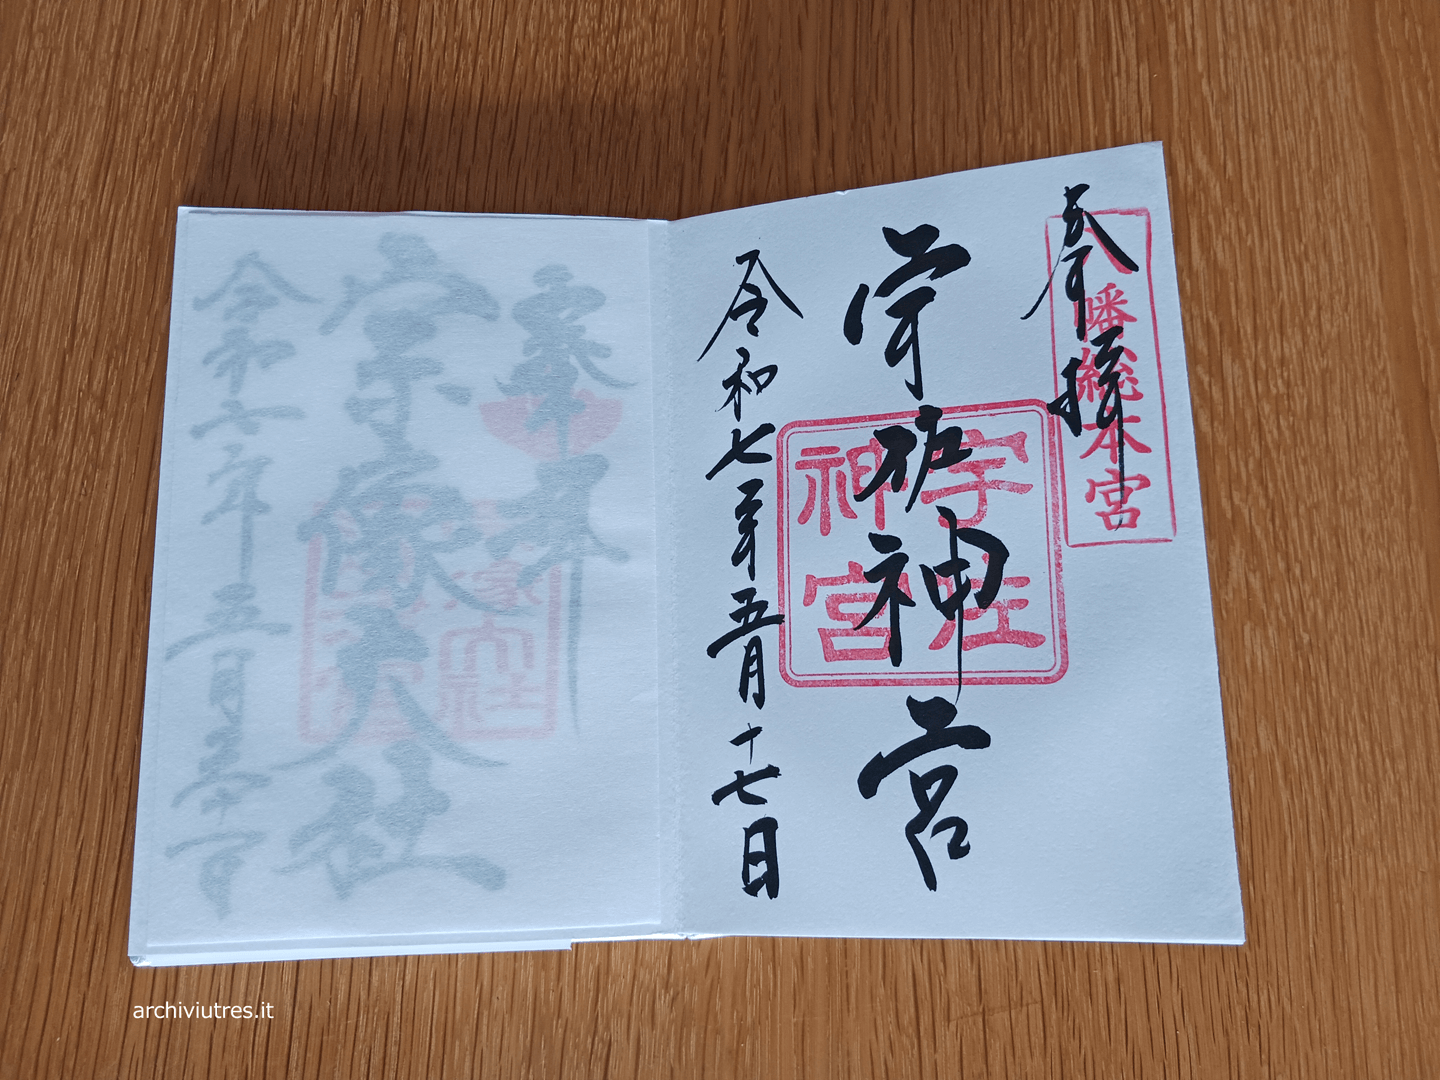 八幡総本宮
奉拝
宇佐神宮
宇佐神宮
令和七年五月十七日
宗像大社